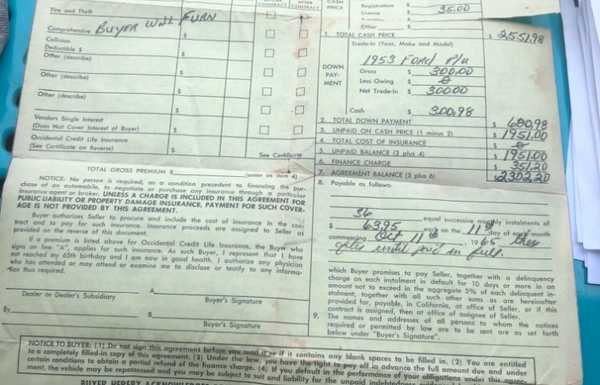 CASH PRICE
Registration $
License 35.00
Other $
1. TOTAL CASH PRICE $ 2,551.98
Trade-In (Year, Make and Model)
1953 Ford P/u
DOWN PAYMENT
Gross $ 300.00
Less Owing $
Net Trade-In $ 300.00
Cash $ 300.98
2. TOTAL DOWN PAYMENT $ 600.98
3. UNPAID ON CASH PRICE (1 minus 2) $ 1951.00
4. TOTAL COST OF INSURANCE $
5. UNPAID BALANCE (3 plus 4) $ 1951.00
6. FINANCE CHARGE $ 351.20
7. AGREEMENT BALANCE (5 plus 6) $ 2302.20
8. Payable as follows:
36 equal successive monthly instalments of
$ 63.95 each on the 11th day of each month
commencing Oct 11th 1965
until paid in full.
which Buyer promises to pay Seller, together with a delinquency
charge on each instalment in default for 10 days or more in an
amount not to exceed in the aggregate 5% of each delinquent in-
stalment; together with all such other sums as are hereinafter
provided for, payable, in California, at office of Seller, or if this
contract is assigned, then at office of assignee of Seller.
9. The names and addresses of all persons to whom the notices
required or permitted by law are to be sent are as set forth
below under "Buyer's Signature".
Fire and Theft
Comprehensive Buyer Will Furn
Collision
Deductible $
Other (describe)
Other (describe)
Other (describe)
Vendors Single Interest
(Does Not Cover Interest of Buyer)
Occidental Credit Life Insurance
(See Certificate on Reverse) See Certificate
TOTAL GROSS PREMIUM $ (enter on item 4)
NOTICE: No person is required, as a condition precedent to financing the pur-
chase of an automobile, to negotiate or purchase any insurance through a particular
insurance agent or broker. UNLESS A CHARGE IS INCLUDED IN THIS AGREEMENT FOR
PUBLIC LIABILITY OR PROPERTY DAMAGE INSURANCE, PAYMENT FOR SUCH COVER-
AGE IS NOT PROVIDED BY THIS AGREEMENT.
Buyer authorizes Seller to procure and include the cost of insurance in the con-
tract and to pay for such insurance. Insurance proceeds are assigned to Seller as
provided on the reverse of this document.
If a premium is listed above for Occidental Credit Life Insurance, the Buyer who
signs on line "x", applies for such insurance. As such Buyer, I represent that I have
not reached my 65th birthday and I am now in good health. I authorize any physician
who has attended or may attend or examine me to disclose or testify to any informa-
tion thus required.
Dealer or Dealer's Subsidiary
Buyer's Signature
By
Buyer's Signature
NOTICE TO BUYER: (1) Do not sign this agreement before you read it or if it contains any blank spaces to be filled in. (2) You are entitled
to a completely filled-in copy of this agreement. (3) Under the law, you have the right to pay off in advance the full amount due and under
certain conditions to obtain a partial refund of the finance charge. (4) If you default in the performance of your obligations under this agree-
ment, the vehicle may be repossessed and you may be subject to suit and liability for the unpaid indebtedness
BUYER HEREBY